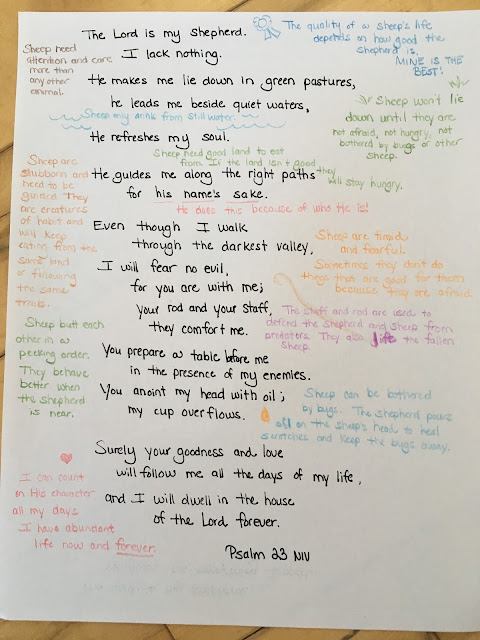 The Lord is my shepherd.
I lack nothing.
He makes me lie down in green pastures,
he leads me beside quiet waters,
He refreshes my soul.
He guides me along the right paths
for his name's sake.
Even though I walk
through the darkest valley,
I will fear no evil,
for you are with me;
your rod and your staff,
they comfort me.
You prepare a table before me
in the presence of my enemies.
You anoint my head with oil;
my cup overflows.
Surely your goodness and love
will follow me all the days of my life,
and I will dwell in the house
of the Lord forever.
Psalm 23 NIV
The quality of a sheep's life
depends on how good the
shepherd is.
MINE IS THE
BEST!
Sheep need
attention and care
more than
any other
animal.
Sheep won't lie
down until they are
not afraid, not hungry, not
bothered by bugs or other
sheep.
Sheep only drink from still water.
Sheep need good land to eat
from. If the land isn't good
they
will stay hungry.
Sheep are
stubborn and
need to be
guided. They
are creatures
of habit and
will keep
eating from the
same land
or following
the same
trails.
He does this because of who He is!
Sheep are timid
and fearful.
Sometimes they don't do
things that are good for them
because they are afraid.
The staff and rod are used to
defend the shepherd and sheep from
predators. They also lift the fallen
sheep.
Sheep butt each
other in a
pecking order.
They behave
better when
the shepherd
is near.
Sheep can be bothered
by bugs. The shepherd pours
oil on the sheep's head to heal
scratches and keep the bugs away.
I can count
on His character
all my days
I have abundant
life now and forever.